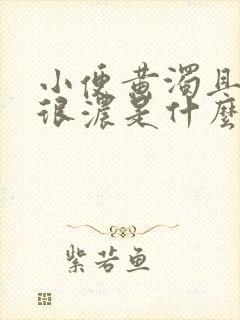 小便黄浊且
很浓是什麼
紫若鱼